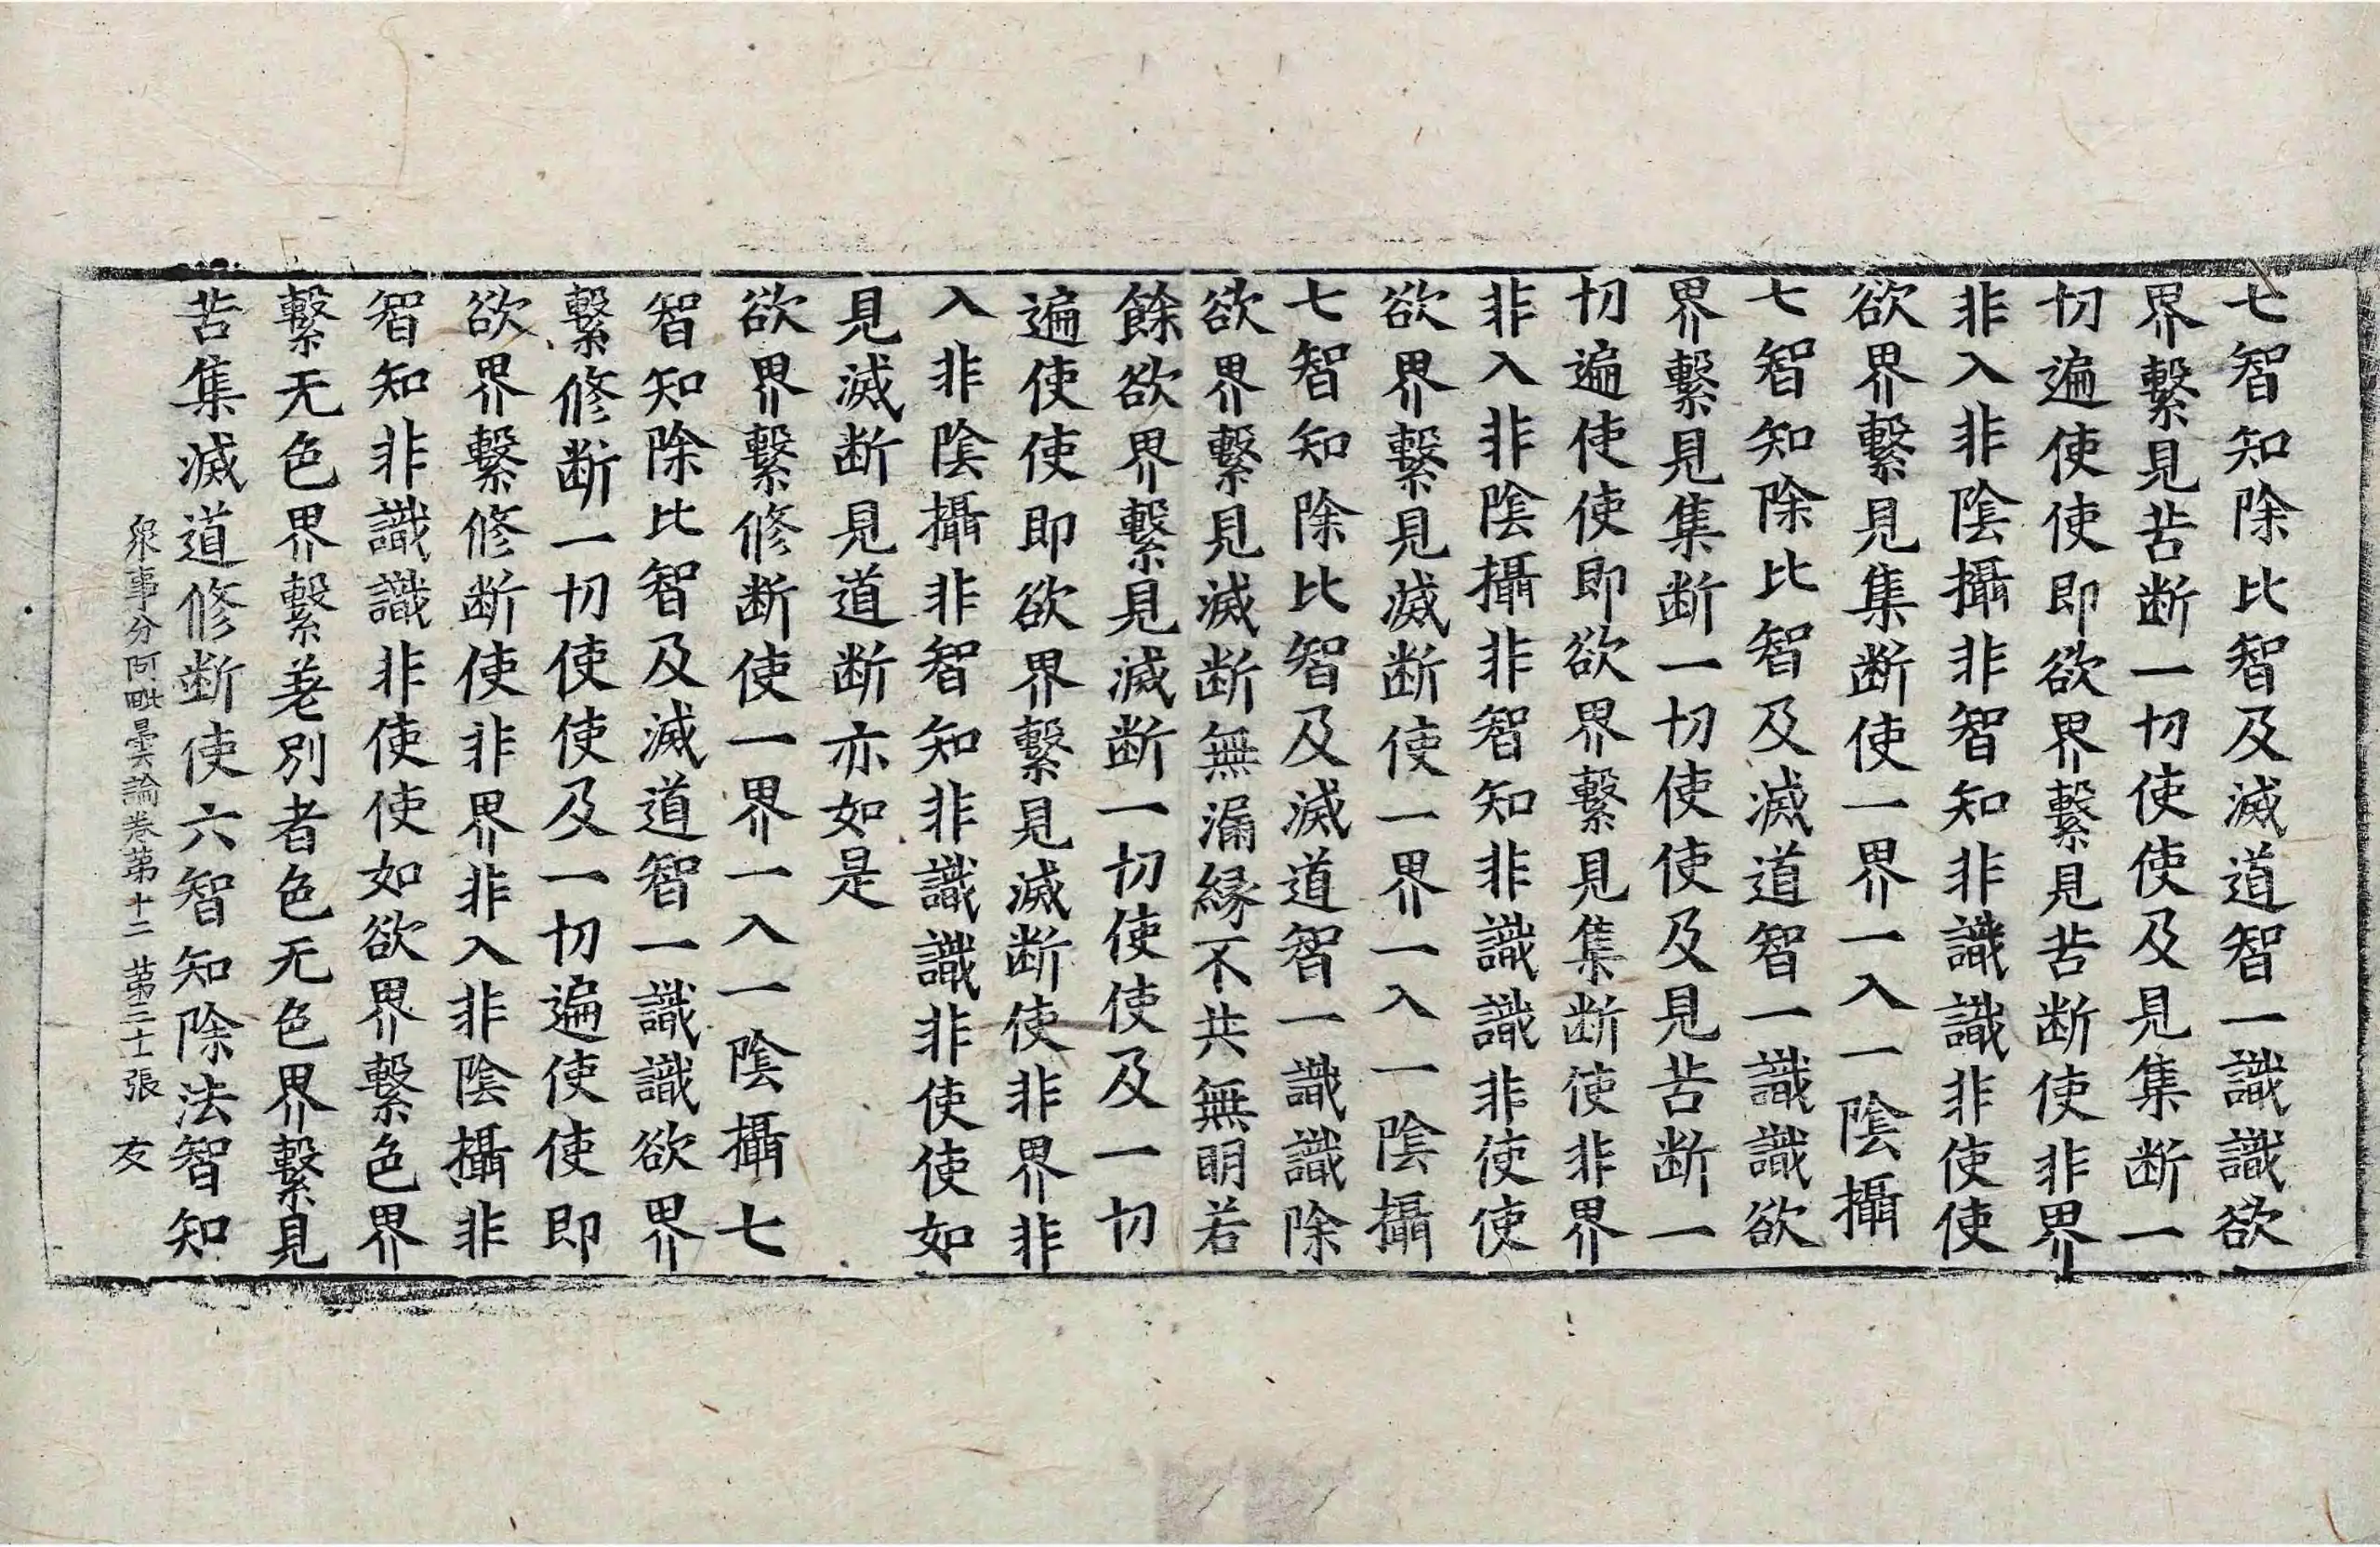 七智知除比智及滅道智一識識欲
界繫見苦断一切使使及見集断一
切遍使使即欲界繫見苦断使非界
非入非陰攝非智知非識識非使使
欲界繫見集断使一界一入一陰攝
七智知除比智及滅道智一識識欲
界繫見集断一切使使及見苦断一
切遍使使即欲界繫見集断使非界
非入非陰攝非智知非識識非使使
欲界繫見滅断使一界一入一陰攝
七智知除比智及滅道智一識識除
欲界繫見滅断無漏縁不共無明若
餘欲界繫見滅断一切使使及一切
遍使使即欲界繫見滅断使非界非
入非陰攝非智知非識識非使使如
見滅断見道断亦如是
欲界繫修断使一界一入一陰攝七
智知除比智及滅道智一識識欲界
繫修断一切使使及一切遍使使即
欲界繫修断使非界非入非陰攝非
智知非識識非使使如欲界繫色界
繫无色界繫差別者色无色界繫見
苦集滅道修断使六智知除法智知
衆事分阿毗曇論卷第十二 第三十張 友